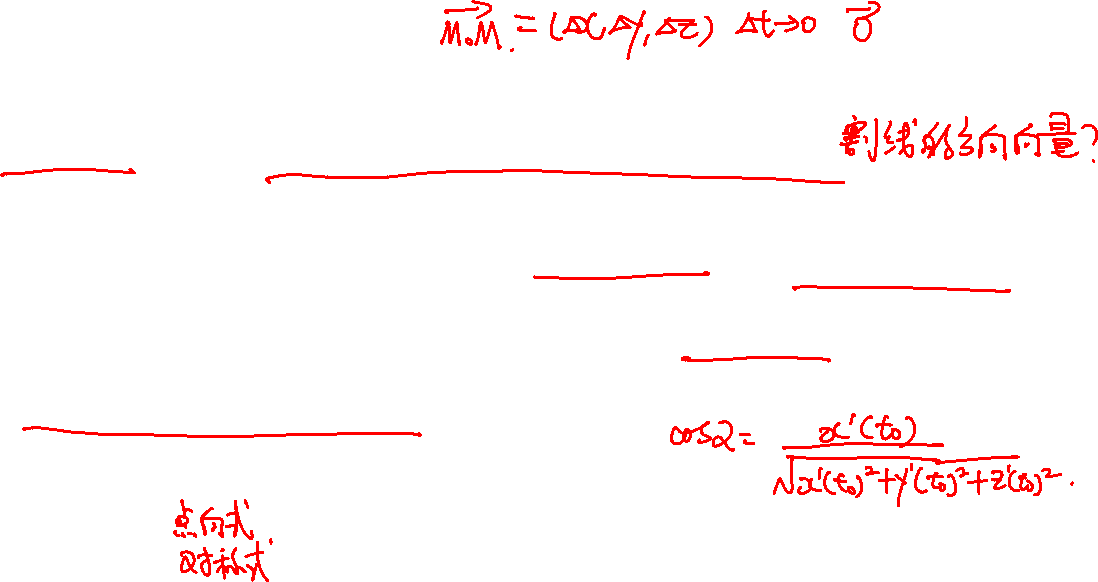 $\overrightarrow{M_0M} = (\Delta x, \Delta y, \Delta z)$ $\Delta t \to 0$ $\vec{0}$
割线的方向向量?
$\cos\alpha = \frac{x'(t_0)}{\sqrt{x'(t_0)^2 + y'(t_0)^2 + z'(t_0)^2}}$.
点向式
对称式